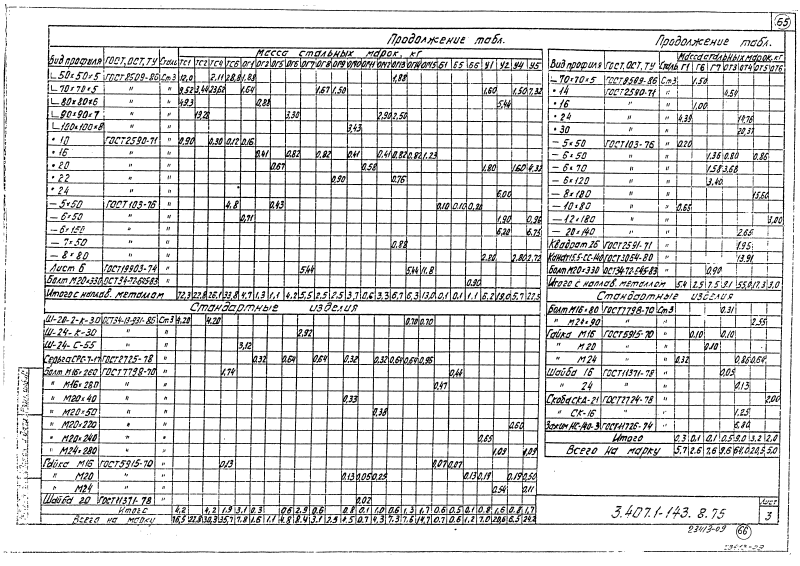 65
Продолжение табл.
Вид профиля ГОСТ, ОСТ, ТУ Сталь Масса стальных марок, кг
∟50×50×5 ГОСТ8509-86 Ст3 12,0 2,11 28,8 1,83 1,88
∟70×70×5 " " 8,52 3,44 23,62 1,64 1,67 1,50 1,60 1,50 7,32
∟80×80×6 " " 49,3 0,88 5,44
∟90×90×7 " " 19,20 3,30 2,90 2,50
∟100×100×8 " " 3,43
• 10 ГОСТ2590-71 " 0,90 0,30 0,12 0,16
• 16 " " 0,41 0,82 0,82 0,41 0,41 0,82 0,82 1,23
• 20 " " 0,67 0,58 1,80 1,60 4,33
• 22 " " 0,90 0,76
• 24 " 6,00
— 5×50 ГОСТ103-76 " 4,8 0,43 0,10 0,10 0,20
— 6×50 " 0,71 1,90 0,96
— 6×150 " " 6,20 6,75
— 7×50 " 0,88
— 8×80 " 2,80 2,80 2,72
Лист 6 ГОСТ19903-74 " 5,44 5,44 11,8
Болт М20×330 " 0,90
Итого с наплав. металлом 72,3 22,8 26,1 33,8 4,7 1,3 1,1 4,2 5,5 2,5 2,5 3,7 0,6 3,3 6,7 6,3 13,0 0,1 0,1 1,1 6,2 19,0 5,7 22,5
Стандартные изделия
Ш-20-2-К-3.0 Ст3 4,20 4,20 0,70 0,70
Ш-24-К-30 " 2,92
Ш-24-С-55 " 3,12
Серьга СРС-7-17 ГОСТ2725-78 " 0,32 0,64 0,64 0,32 0,32 0,64 0,64 0,96
Болт М16×260 ГОСТ7798-70 " 1,74 0,44
" М16×280 " " 0,47
" М20×40 " 0,33
" М20×50 " " 0,38
" М20×220 " " 0,60
" М20×240 " " 0,65
" М24×280 " " 1,09 1,09
Гайка М16 ГОСТ5915-70 " 0,13 0,07 0,07
" М20 " " 0,13 0,06 0,25 0,13 0,19 0,19 0,50
" М24 " 0,54 0,11
Шайба 20 ГОСТ11371-78 " 0,02
Итого 4,2 4,2 1,9 3,1 0,3 0,6 2,9 0,6 0,8 0,1 1,0 0,6 1,3 1,7 0,6 0,5 0,1 0,8 1,6 0,8 1,7
Всего на марку 76,5 22,8 30,3 35,7 7,8 1,6 1,1 4,8 8,4 3,1 2,5 4,5 0,7 4,3 7,3 7,6 14,7 0,7 0,6 1,2 7,0 20,6 6,5 24,2
Продолжение табл.
Вид профиля ГОСТ, ОСТ, ТУ Сталь Масса стальных марок, кг
Г1 Г6 Г7 ОТ3 ОТ4 ОТ5 ОТ6
∟70×70×5 ГОСТ8509-86 Ст3 1,50
• 14 ГОСТ2590-71 " 4,54
• 16 " " 1,00
• 24 " " 4,39 19,76
• 30 " " 20,37
— 5×50 ГОСТ103-76 " 0,20
— 6×50 " " 1,36 0,80 0,86
— 6×70 " " 1,58 3,68
— 6×120 " " 3,40
— 8×180 " " 15,60
— 10×80 " " 0,65
— 12×180 " " 3,00
— 20×140 " " 2,65
Квадрат 26 ГОСТ2591-71 1,95
ГОСТ3064-80 " 13,91
Болт М20×330 " 0,90
Итого с наплав. металлом 5,4 2,5 7,5 9,1 55,0 17,3 3,0
Стандартные изделия
Болт М16×80 ГОСТ7798-70 Ст3 0,31
" М24×90 " " 2,55
Гайка М16 ГОСТ5915-70 " 0,10 0,10
" М20 " " 0,10
" М24 " " 0,32 0,86 0,64
Шайба 16 ГОСТ11371-78 " 0,05
" 24 " " 0,13
Скоба СКД-21 ГОСТ2724-78 " 2,00
" СК-16 " 1,25
6,80
Итого 0,3 0,1 0,1 0,5 9,0 3,2 2,0
Всего на марку 5,7 2,6 7,6 9,6 64,0 20,5 5,0
3.407.1-143. 8.75
Лист
3
23413-09 66